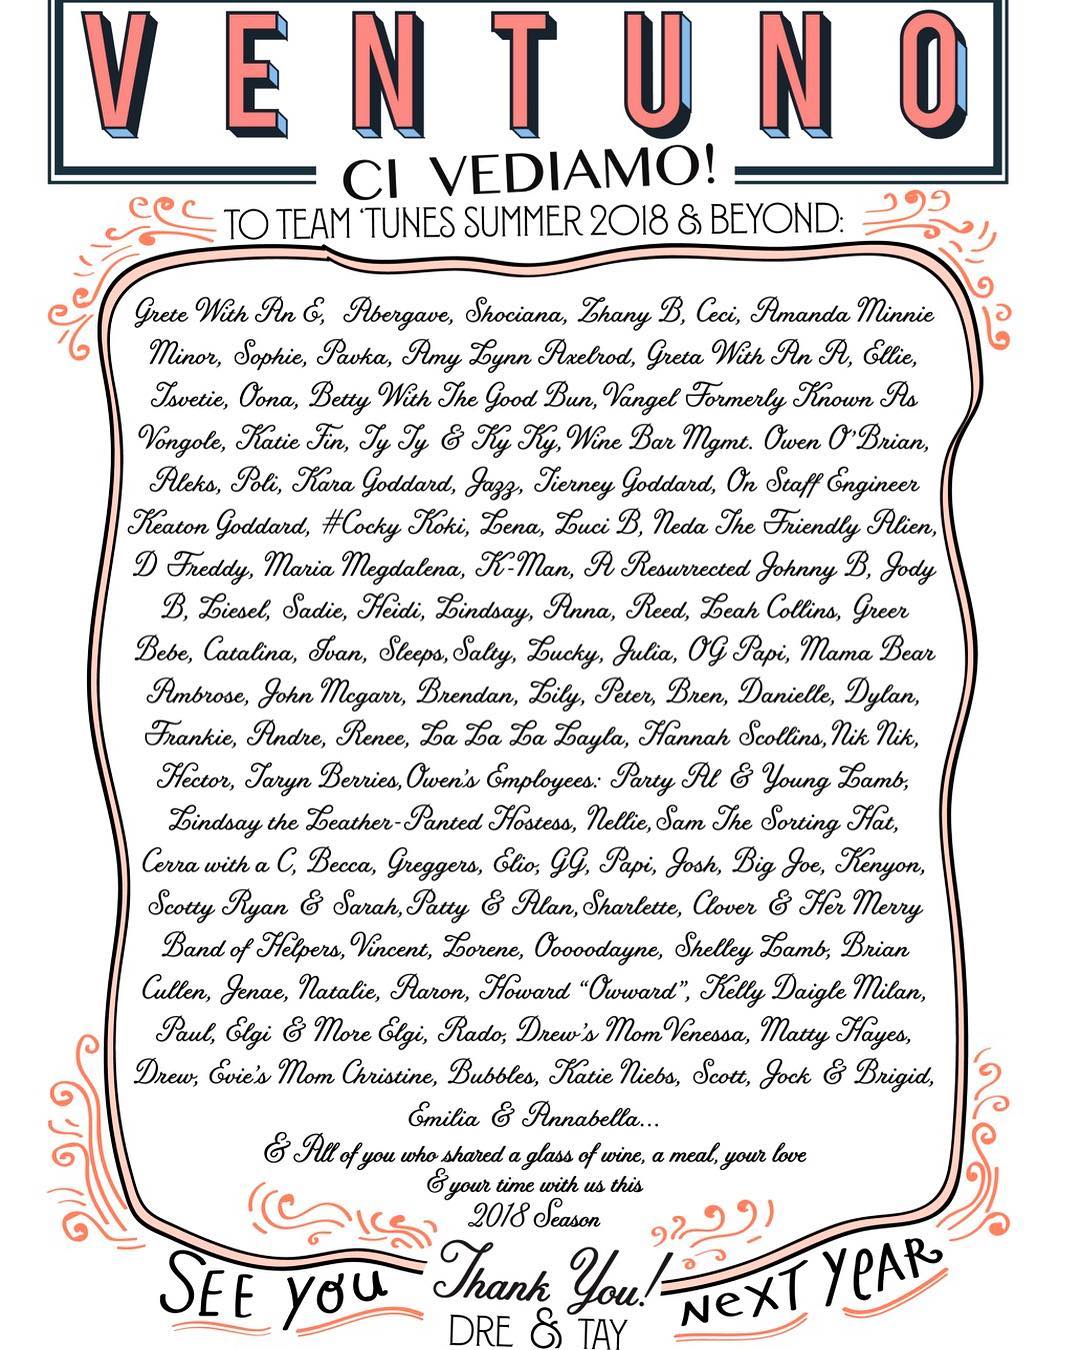 VENTUNO
CI VEDIAMO!
TO TEAM 'TUNES SUMMER 2018 & BEYOND:
Grete With An E, Abergave, Shociana, Zhany B, Ceci, Amanda Minnie
Minor, Sophie, Pavka, Amy Lynn Axelrod, Greta With An A, Ellie,
Tsvetie, Oona, Betty With The Good Bun, Vangel Formerly Known As
Vongole, Katie Fin, Ty Ty & Ky Ky, Wine Bar Mgmt. Owen O'Brian,
Aleks, Poli, Kara Goddard, Jazz, Tierney Goddard, On Staff Engineer
Keaton Goddard, #Cocky Koki, Lena, Luci B, Neda The Friendly Alien,
D Freddy, Maria Megdalena, K-Man, A Resurrected Johnny B, Jody
B, Liesel, Sadie, Heidi, Lindsay, Anna, Reed, Leah Collins, Greer
Bebe, Catalina, Ivan, Sleeps, Salty, Lucky, Julia, OG Papi, Mama Bear
Ambrose, John Mcgarr, Brendan, Lily, Peter, Bren, Danielle, Dylan,
Frankie, Andre, Renee, La La La Layla, Hannah Scollins, Nik Nik,
Hector, Taryn Berries, Owen's Employees: Party Al & Young Lamb,
Lindsay the Leather-Panted Hostess, Nellie, Sam The Sorting Hat,
Cerra with a C, Becca, Greggers, Elio, GG, Papi, Josh, Big Joe, Kenyon,
Scotty Ryan & Sarah, Patty & Alan, Sharlette, Clover & Her Merry
Band of Helpers, Vincent, Lorene, Ooooodayne, Shelley Lamb, Brian
Cullen, Jenae, Natalie, Aaron, Howard "Owward", Kelly Daigle Milan,
Paul, Elgi & More Elgi, Rado, Drew's MomVenessa, Matty Hayes,
Drew, Evie's Mom Christine, Bubbles, Katie Niebs, Scott, Jock & Brigid,
Emilia & Annabella...
& All of you who shared a glass of wine, a meal, your love
& your time with us this
2018 Season
Thank You!
SEE YOU NEXT YEAR
DRE & TAY